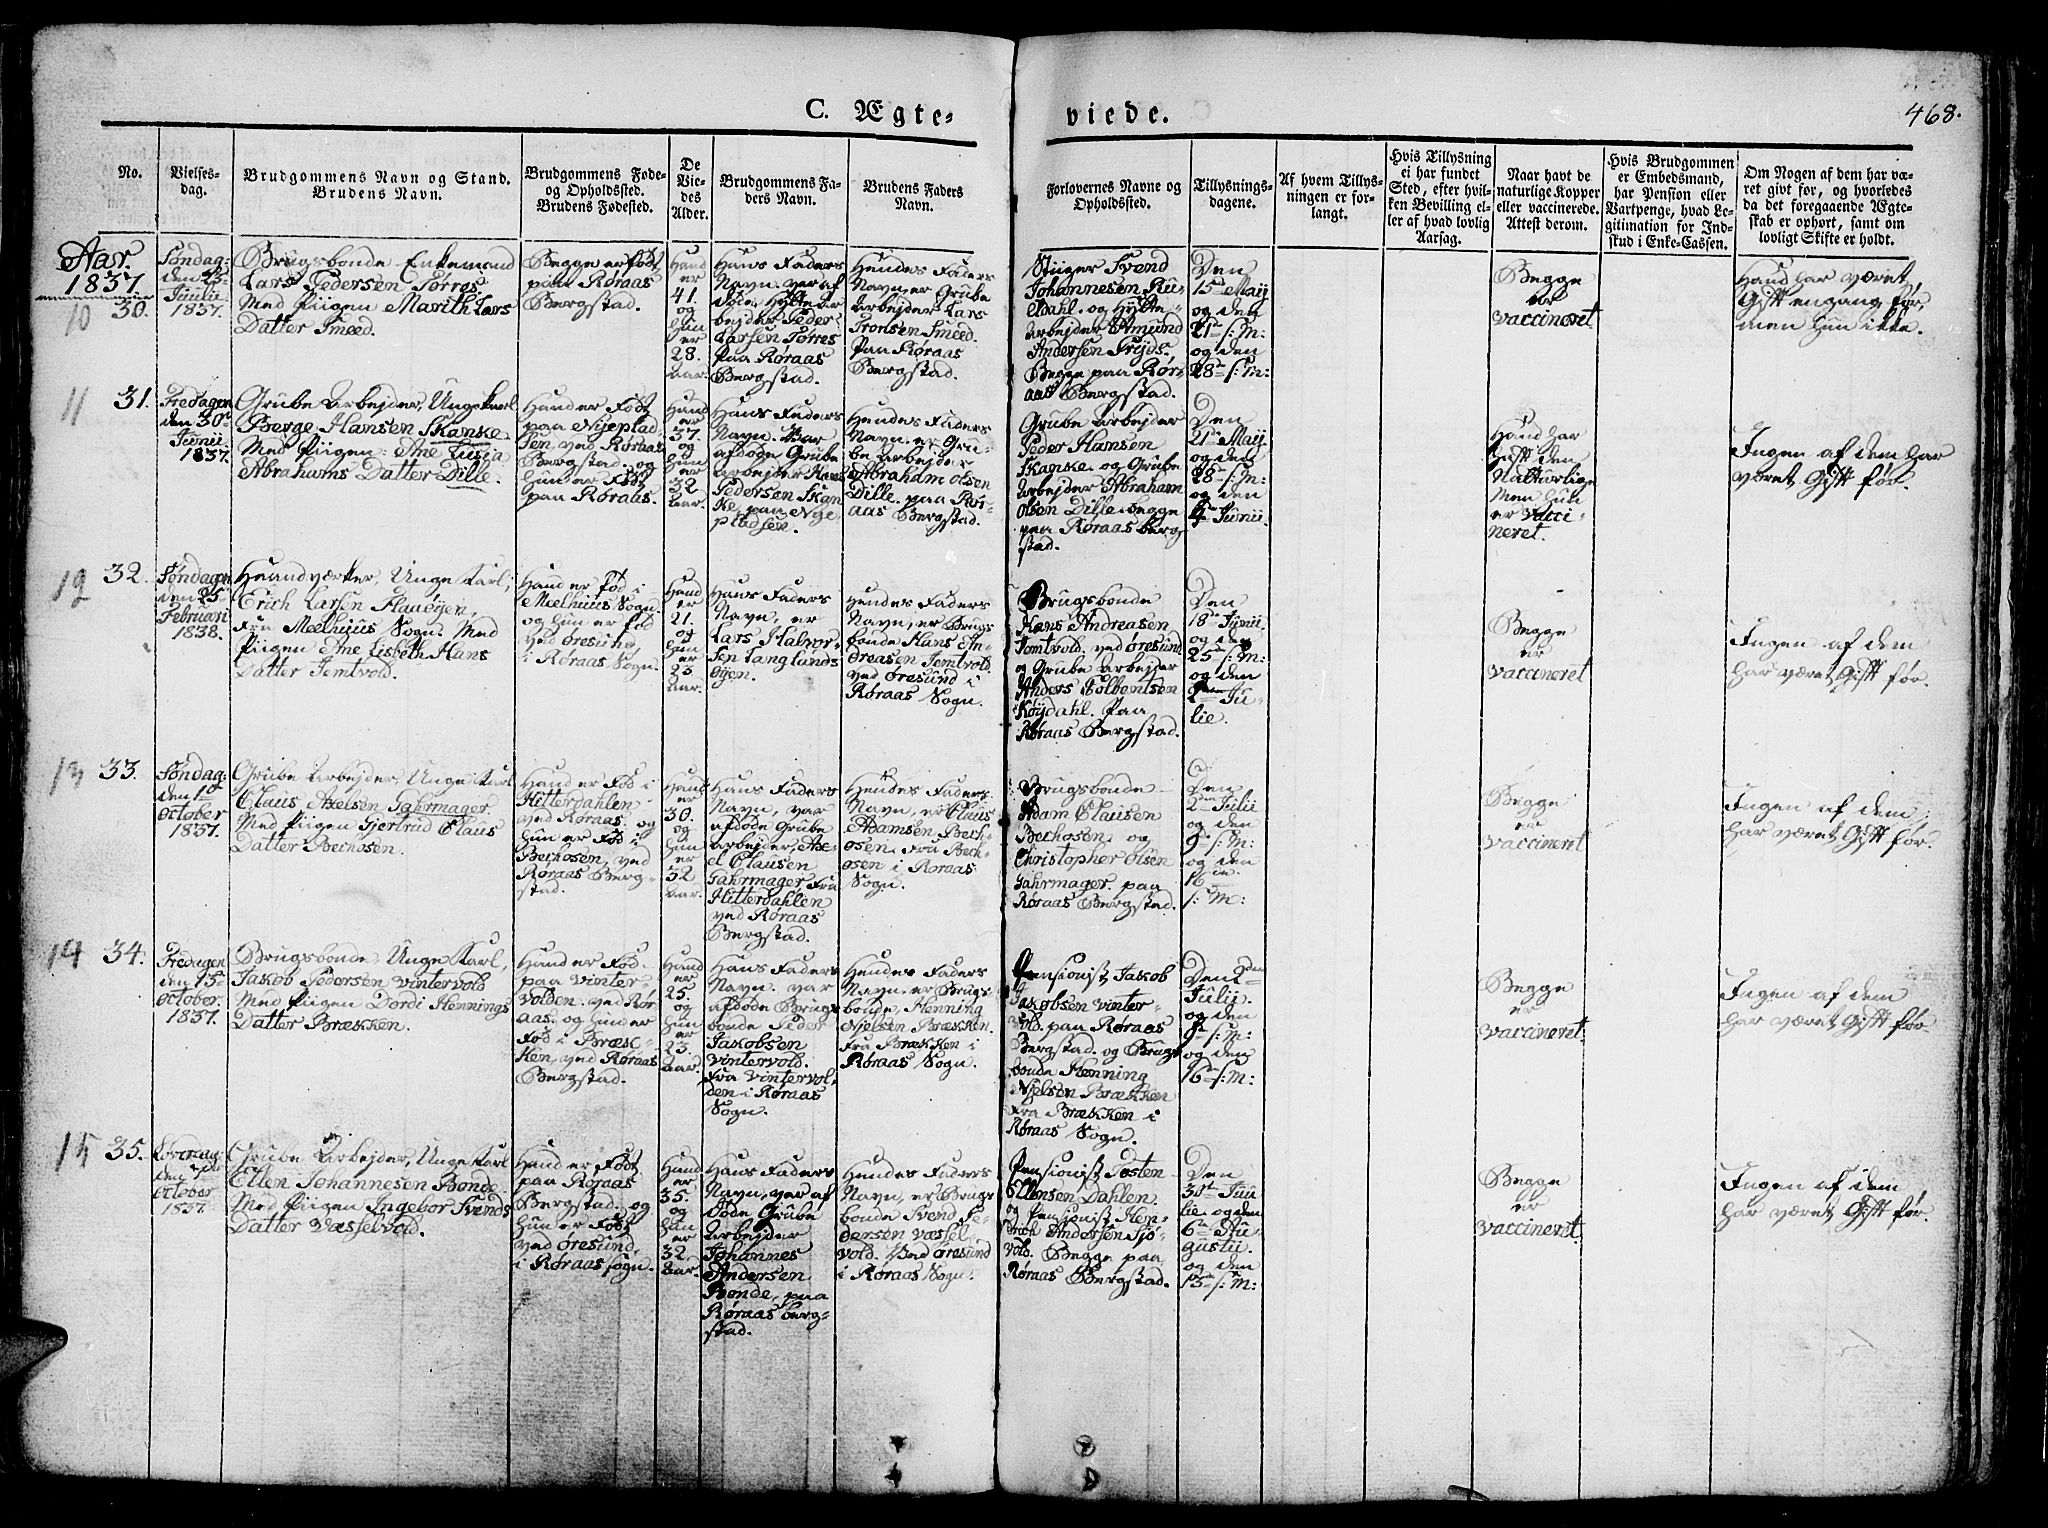 C. Ægte-
viede.
468.
No.
Vielses-
dag.
Brudgommens Navn og Stand.
Brudens Navn.
Brudgommens Føde-
og Opholdssted.
Brudens Fødested.
De
Vie-
des
Alder.
Brudgommens Fa-
ders Navn.
Brudens Faders
Navn.
Forlovernes Navne og
Opholdssted.
Tillysnings-
dagene.
Af hvem Tillys-
ningen er for-
langt.
Hvis Tillysning
ei har fundet
Sted, efter hvil-
ken Bevilling el-
ler af hvad lovlig
Aarsag.
Naar havt de
naturlige Kopper
eller vaccinerede.
Attest derom.
Hvis Brudgommen
er Embedsmand,
har Pension eller
Vartpenge, hvad Le-
gitimation for Ind-
skud i Enke-Cassen.
Om Nogen af dem har væ-
ret givt før, og hvorledes
da det foregaaende Ægte-
skab er ophørt, samt om
lovligt Skifte er holdt.
Aar.
1837.
10 30.
Søndag:
den
Juulii
1837.
Brugsbonde Enkemand
Lars Pedersen Torres
Med Piigen Marith Lars
Datter Smeed.
Begge er født
paa Røraas
Bergstad.
Hand
er
41.
og
hun
er
28.
aar.
Hans Faders
Navn var af
døde Hytte ar
bejder Peder
Larsen Torres
paa Røraas
Bergstad.
Hendes Faders
Navn, er Grube
Arbejder Lars
Tronsen Smeed.
Paa Røraas
Bergstad.
Stiiger Svend
Johannesen Rü-
eldahl. og Hytte-
Arbejder Amund
Andersen Trÿds.
Begge paa Rør-
aas Bergstad.
Den
15de Maij
og den
21de s: M:
og den
28de s: M:
Begge
er
vaccineret
Hand har været
Gift engang før,
men hun ikke.
11 31.
Fredagen
den 30te
Junii
1837.
Grube Arbejder, Unge Karl
Berge Hansen Skanke
Med Piigen Ane Lusia
Abrahams Datter Dille.
Hand er Født
paa Nyeplad-
sen ved Røraas
Bergstad. og
hun er Født
paa Røraas.
Hand
er
37.
og
hun
er
32
aar.
Hans Faders
Navn. Var
afdøde Grube
arbejder Hans
Pedersen Skan
ke, paa Nye-
pladsen.
Hendes Faders
Navn. er Gru-
be arbejder
Abraham Olsen
Dille. paa Rør-
aas Bergstad.
Grube Arbejder
Peder Hansen
Skanke og Grube
Arbejder Abraham
Olsen Dille begge
paa Røraas berg
stad.
Den
21de Maij
og den
28de s: M:
og den
4de Junii.
Hand har
haft den
Naturlige
Men hun
er Vacci-
neret.
Ingen af dem har
været Gift før
12 32.
Søndagen
den 25de
Februari
1838.
Haandværker, Unge Karl,
Erich Larsen Flaaøÿen,
fra Meelhuus Sogn. Med
Piigen Ane Lisbeth Hans
Datter Jemtvold.
Hand er Fød i
Mielhuus Sogn.
og hun er fød
Ved Øresund,
i Røraas Sogn.
Hand
er
21.
og
hun
er
23
aar.
Hans Faders
Navn, er
Lars Halvor-
sen Langlands
Øÿen.
Hendes Faders
Navn, er Brugs
bonde Hans An-
dreasen Jemtvold
ved Øresund i
Røraas Sogn.
Brugsbonde
Hans Andreasen
Jemtvold. ved Øresund
og Grube arbejder
Anders Tolbentsen
Køÿdahl. Paa
Røraas Bergstad.
Den
18de Junii
og den
25de s: M:
og den
2den Ju-
lie.
Begge
er
vaccineret
Ingen af dem
har været Gift før.
13 33.
Søndag:
den 1ste
October
1837.
Grube Arbejder, Unge Karl
Claus Axelsen Gahrmager
Med Piigen Gjertrud Claus
Datter Bechosen.
Hand er Fød i
Hitterdahlen
ved Røraas. og
hun er Fød i
Bechosen, ved
Røraas Berg-
stad.
Hand
er
30.
og
hun
er
32
aar.
Hans Faders
Navn, var
afdøde Grube
arbejder, Axe-
l Clausen
Gahrmager Fra
Hitterdahlen
ved Røraas
Bergstad.
Hendes Faders
Navn, er Claus
Adamsen Bech-
osen. Fra Bech-
osen i Røraas
Sogn.
Brugsbonde
Adam Clausen
Bechosen. og
Christopher Olsen
Gahrmager. paa
Røraas Bergstad.
Den
2den Julii
og den
9de s: M:
og den
16de
s: M:
Begge
er
vaccineret
Ingen af dem
har været Gift før.
14 34.
Fredagen
den 13de
October.
1837.
Brugsbonde, Unge Karl,
Jakob Pedersen Vintervold
Med Piigen Dordi Hennings
Datter Brækken.
Hand er Fød.
paa Vinter-
volden. ved Rør
aas. og hun er
Fød i Bræk-
ken, ved Røraas
Bergstad.
Hand
er
25.
og
hun
er
23.
aar.
Hans Faders
Navn. var
afdøde Brugs
bonde Peder
Jakobsen
Vintervold.
Fra Vintervol-
den i Røraas
Sogn.
Hendes Faders
Navn. er Brugs-
bonde, Henning
Njelsen Brækken.
fra Brækken i
Røraas Sogn.
Pensionist Jakob
Jakobsen Vinter-
vold. paa Røraas
Bergstad. og Brugs
bonde Henning
Njelsen Brækken
Fra Brækken i
Røraas Sogn.
Den 2den
Julii.
og den
9de s: M:
og den
16de s: M:
Begge
er
vaccineret.
Ingen af dem
har været Gift før
15 35.
den
October
1837.
Grube Arbejder, Unge Karl
Ellen Johannesen Bonde
Med Piigen Ingebor Svends
Datter Væsselvold.
Hand er Født
paa Røraas
Bergstad. og
hun er Født
ved Øresund,
i Røraas sogn.
Hand
er
35.
og
hun
er
32.
aar.
Hans Faders
Navn, var af
døde Grube
Arbejder
Johannes
Andersen
Bonde, paa
Røraas berg-
stad.
Hendes Faders
Navn, er Brugs
bonde Svend Pe-
dersen Vassel
vold. Ved Øresund
i Røraas Sogn.
Pensionist Tosten
Ellensen Dahlen.
og Pensionist Hen-
Andersen Sjø-
vold. Begge paa
Røraas Bergstad.
Den
30te Juu
lie og den
6te Au-
gustii.
og den
13de s: M:
Begge
er
vaccineret.
Ingen af dem
har været Gift før.